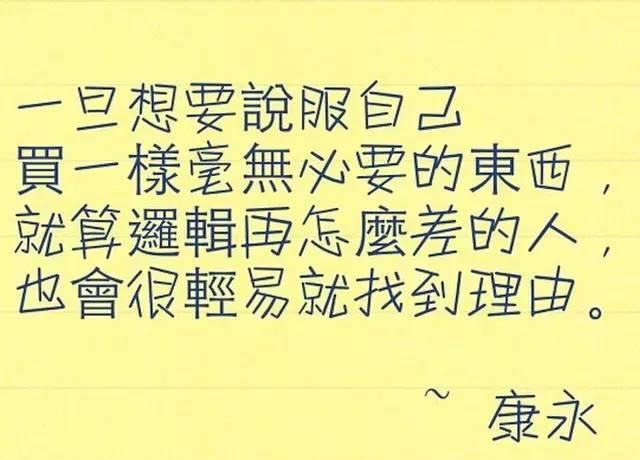 一旦想要說服自己
買一樣毫無必要的東西，
就算邏輯再怎麼差的人，
也會很輕易就找到理由。
~ 康永